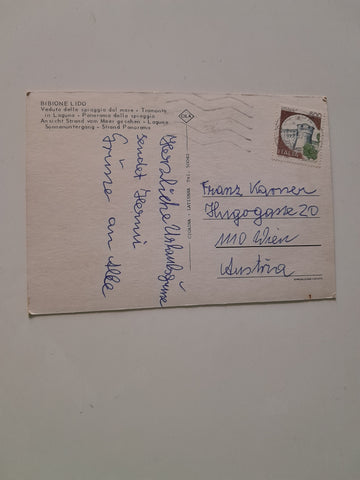 BIBIONE LIDO
Veduta della spiaggia dal mare - Tramonto
in Laguna - Panorama della spiaggia
Ansicht Strand vom Meer gesehen - Laguna
Sonnenuntergang - Strand Panorama
Herzliche Urlaubsgrüsse
sendet Hermi
Grüsse an Alle
Franz Karner
Hugogasse 20
1110 Wien
Austria
ITALIA